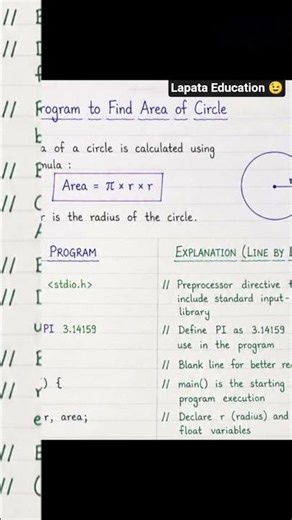 Lapata Education 😉
rogram to Find Area of Circle
a of a circle is calculated using
mula :
Area = π × r × r
r is the radius of the circle.
PROGRAM
EXPLANATION (LINE BY
<stdio.h>
// Preprocessor directive
include standard input-
library
PI 3.14159
// Define PI as 3.14159
use in the program
// Blank line for better re
) {
// main() is the starting
program execution
r, area;
// Declare r (radius) and
float variables